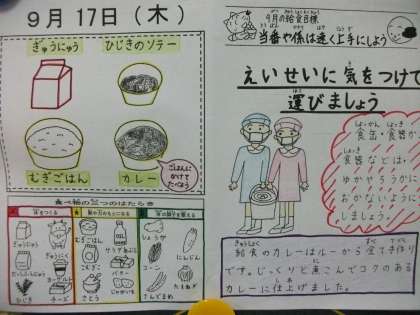 9月 17日 （木）
ぎゅうにゅう
ひじきのソテー
むぎごはん
カレー
ごはんに
かけて
たべよう
食べ物の三つのはたらき
体をつくる
ぎゅうにゅう
ヨーグルト
ひじき
チーズ
こむぎこ
さとう
バター
じゃがいも
しょうが
にんじん
コーン
たまねぎ
えだまめ
9月の給食目標
当番や係は速く上手にしよう
えいせいに気をつけて
運びましょう
しょっかん しょっき
食缶・食器や
食器などは、
ゆかやろうかに
おかないように
しましょう。
きゅうしょく
給食のカレーはルーから全て手作り
です。じっくりと煮こんでコクのある
カレーに仕上げました。